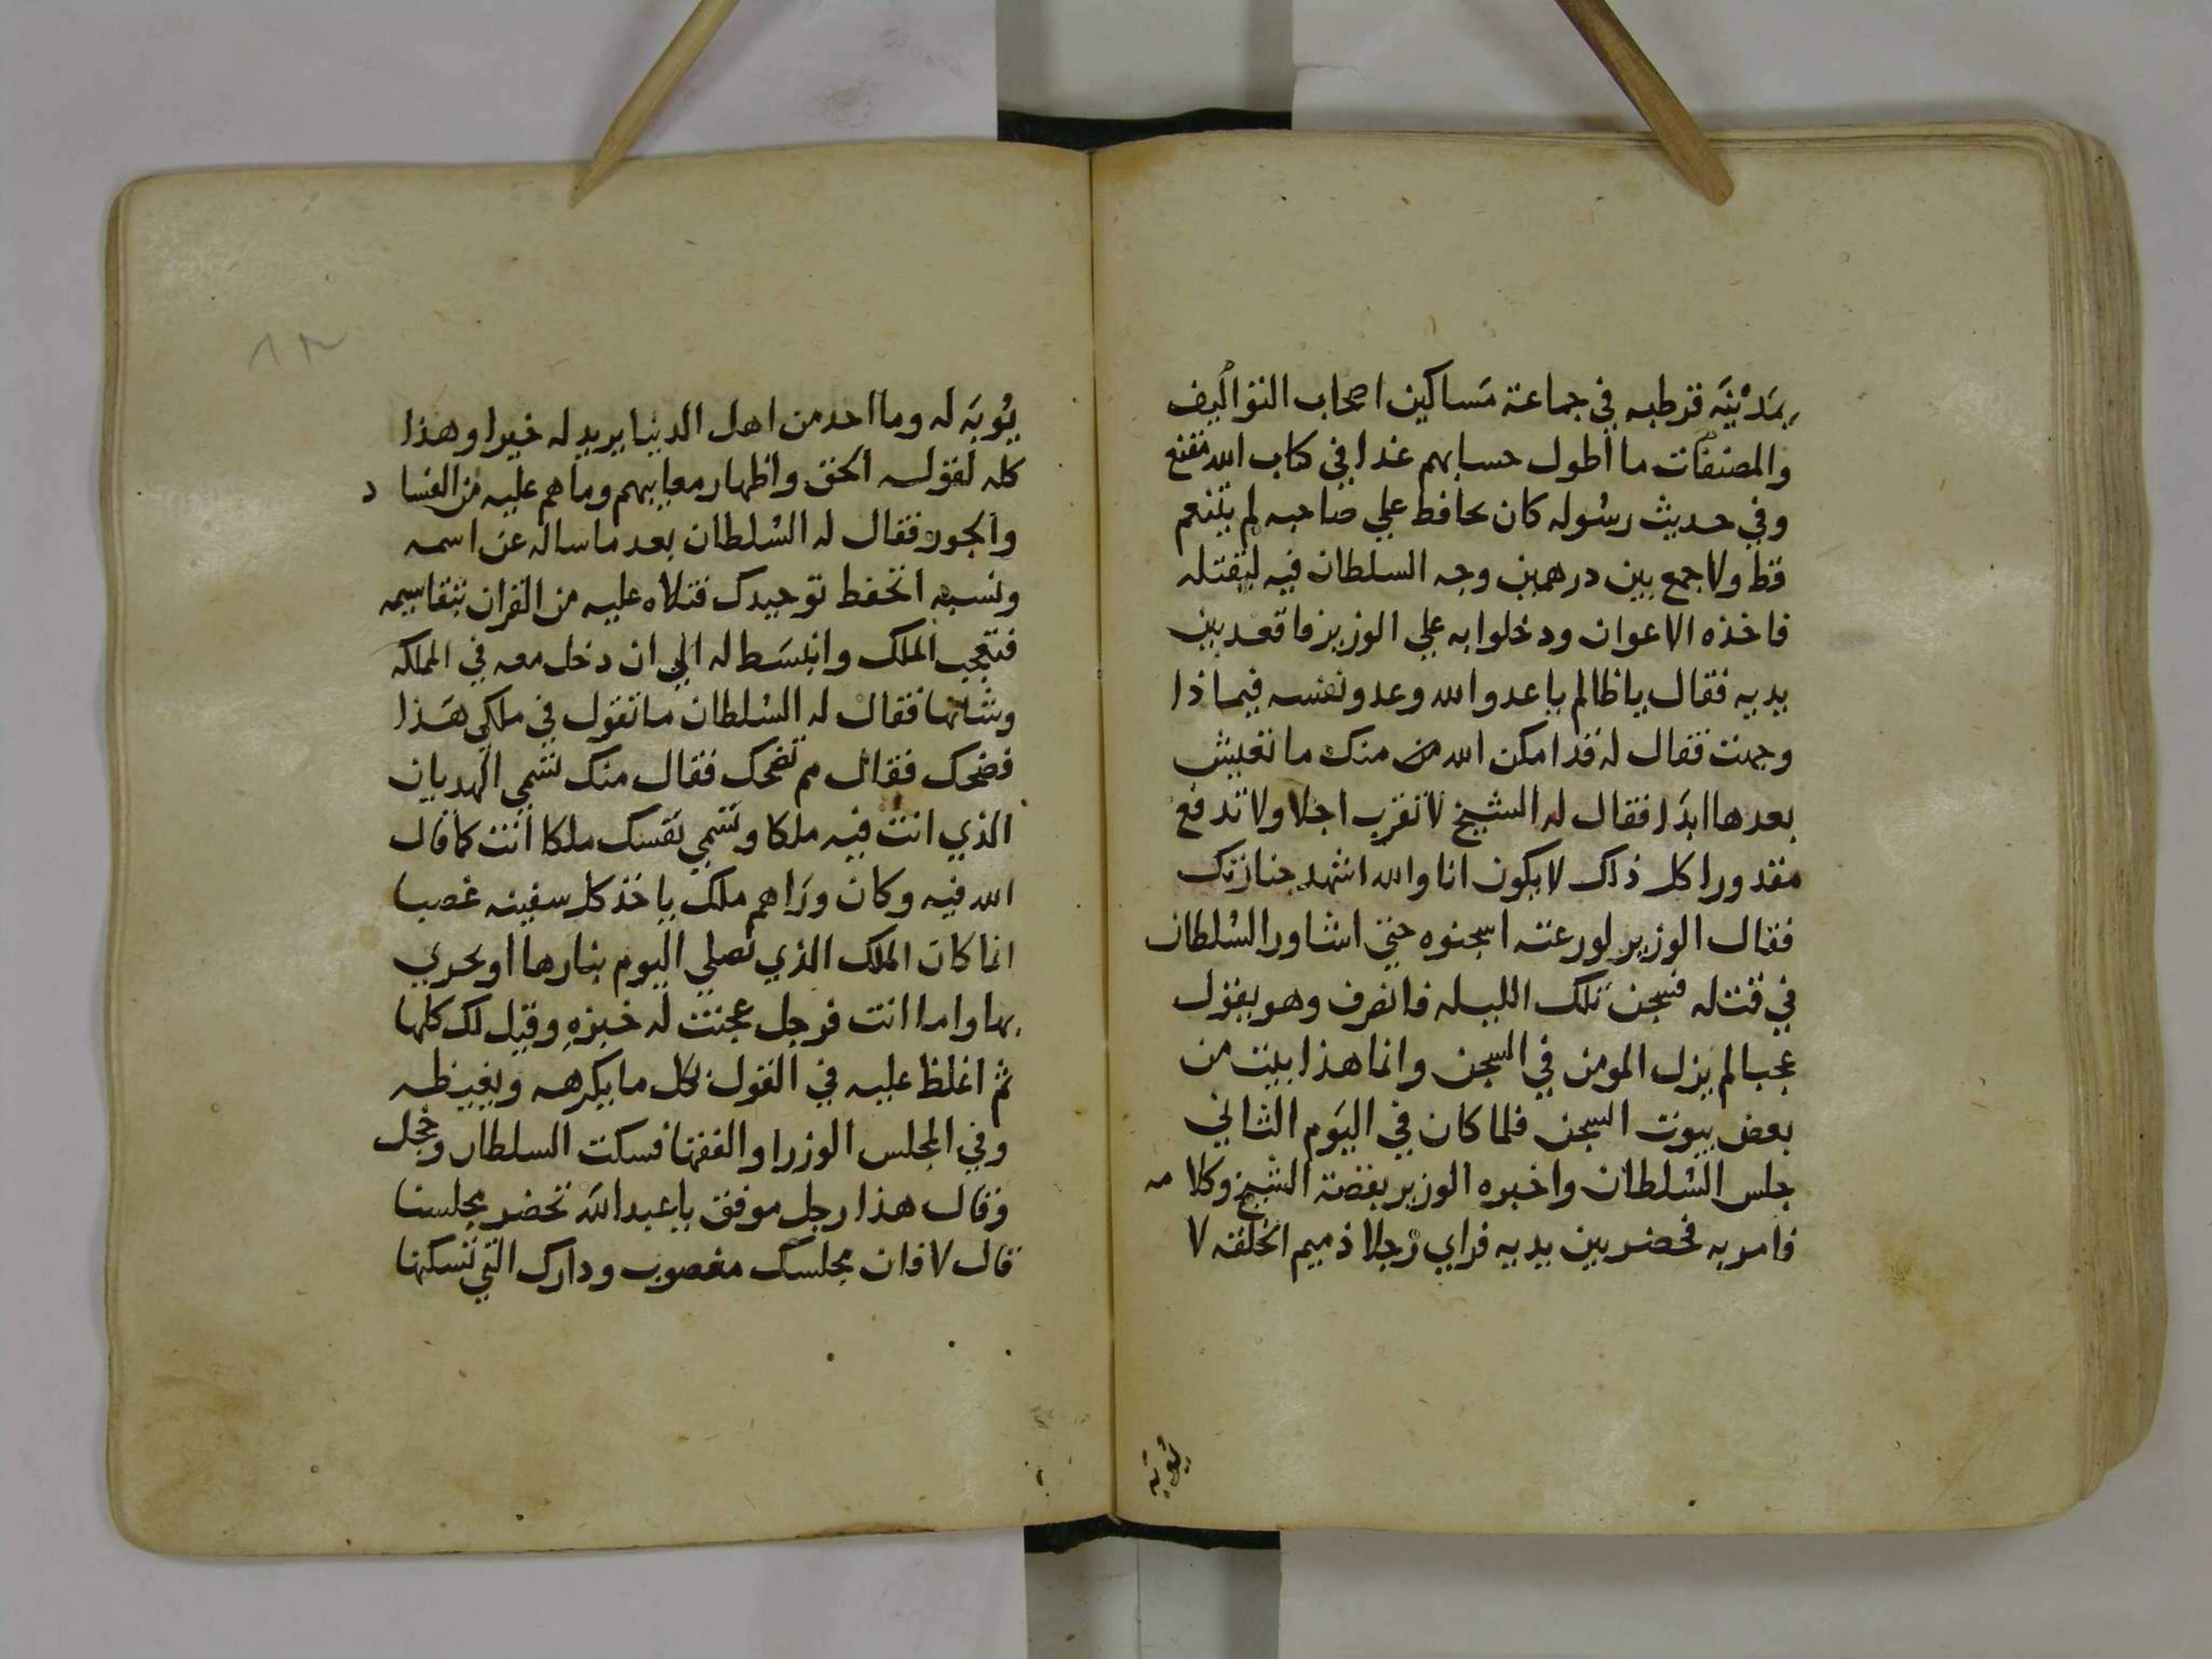 بمدينة قرطبه في جماعة مساكين اصحاب التواليف
والمصنفات ما اطول حسابهم غدا في كتاب الله مقنع
وفي حديث رسوله كان يحافظ علي صاحبه لم يتنعم
قط ولا جمع بين درهمين وجه السلطان فيه ليقتله
فاخذه الاعوان ودخلوا به علي الوزير فاقعد بين
يديه فقال يا ظالم يا عدو الله وعدو نفسه فيما ذا
وجهت فقال له قد امكن الله منك ما تعيش
بعدها ابدا فقال له الشيخ لا تقرب اجلا ولا تدفع
مقدورا كل ذلك لا يكون انا والله اشهد جنازتك
فقال الوزير لوزعته اسجنوه حتي اشاور السلطان
في قتله فسجن تلك الليله فانصرف وهو يقول
عجبا لم يزل المومن في السجن وانما هذا بيت من
بعض بيوت السجن فلما كان في اليوم الثاني
جلس السلطان واخبره الوزير بقصة الشيخ وكلامه
فامر به فحضر بين يديه فراي رجلا ذميم الخلقه لا
يوبه
يوبه له وما احد من اهل الدنيا يريد له خيرا وهذا
كله لقوله الحق واظهار معايبهم وما هم عليه من الفساد
والجور فقال له السلطان بعد ما ساله عن اسمه
ونسبه اتحفظ توحيدك فتلاه عليه من القران بتقاسيمه
فتعجب الملك وانبسط له الي ان دخل معه في المملكه
وشانها فقال له السلطان ما تقول في ملكي هذا
فضحك فقال مم تضحك فقال منك تسمي الهديان
الذي انت فيه ملكا وتسمي نفسك ملكا انت كما قال
الله فيه وكان وراهم ملك ياخذ كل سفينه غصبا
انما كان الملك الذي تصلي اليوم بنارها او يجري
بها واما انت فرجل عجنت له خبزه وقيل لك كلها
ثم اغلظ عليه في القول بكل ما يكرهه ويغيظه
وفي المجلس الوزرا والفقها فسكت السلطان وخجل
وقال هذا رجل موفق يا عبد الله تحضر مجلسنا
قال لا فان مجلسك مغصوب ودارك التي تسكنها